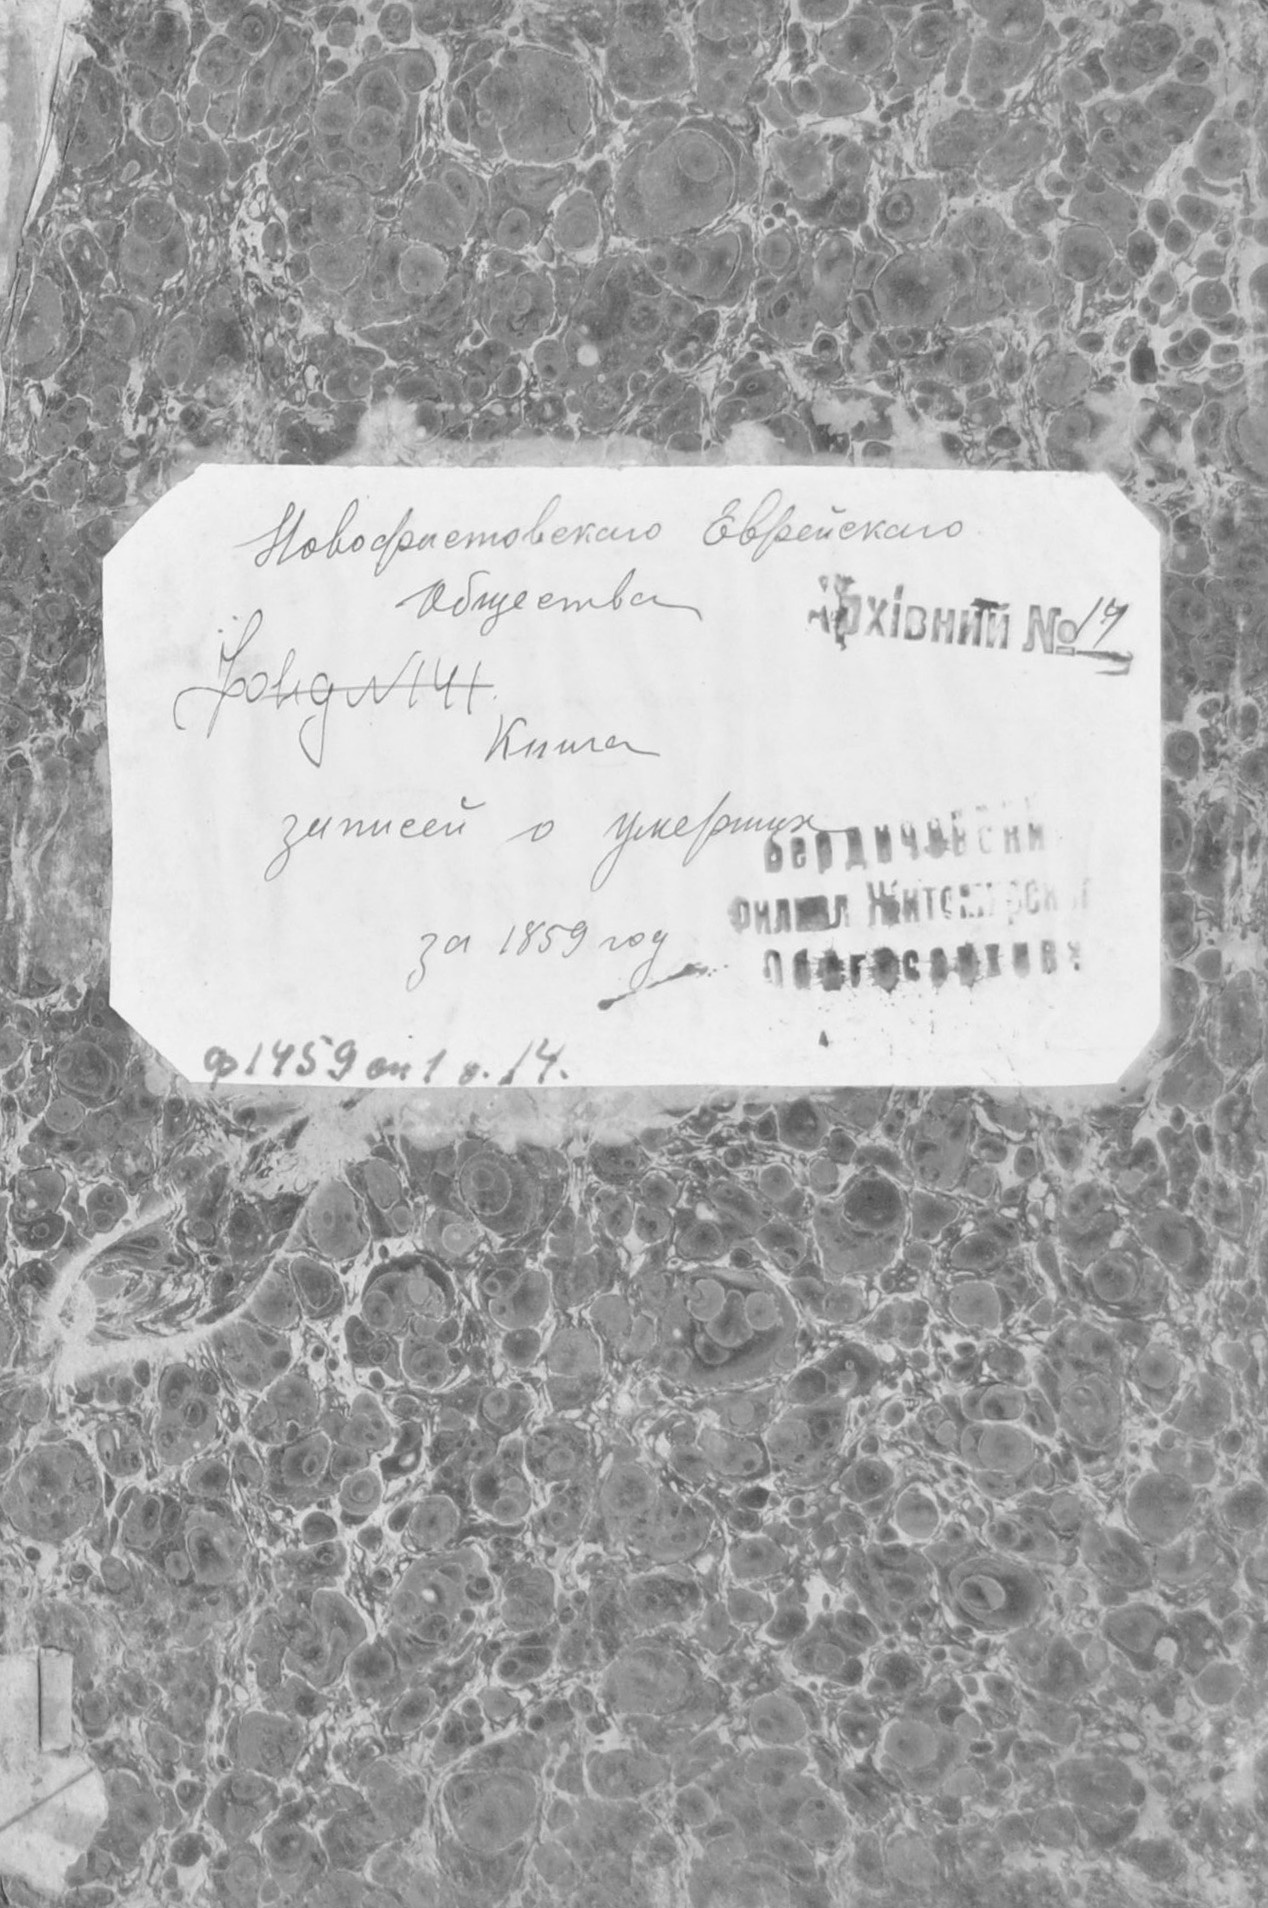 Новофастовскаго Еврейскаго
Общества
Архівний № 14
Фонд № 141.
Книга
записей о умерших
за 1859 год
Бердичевский
Филиал Житомирского
Облгосархива
ф 1459 оп 1 д. 14.